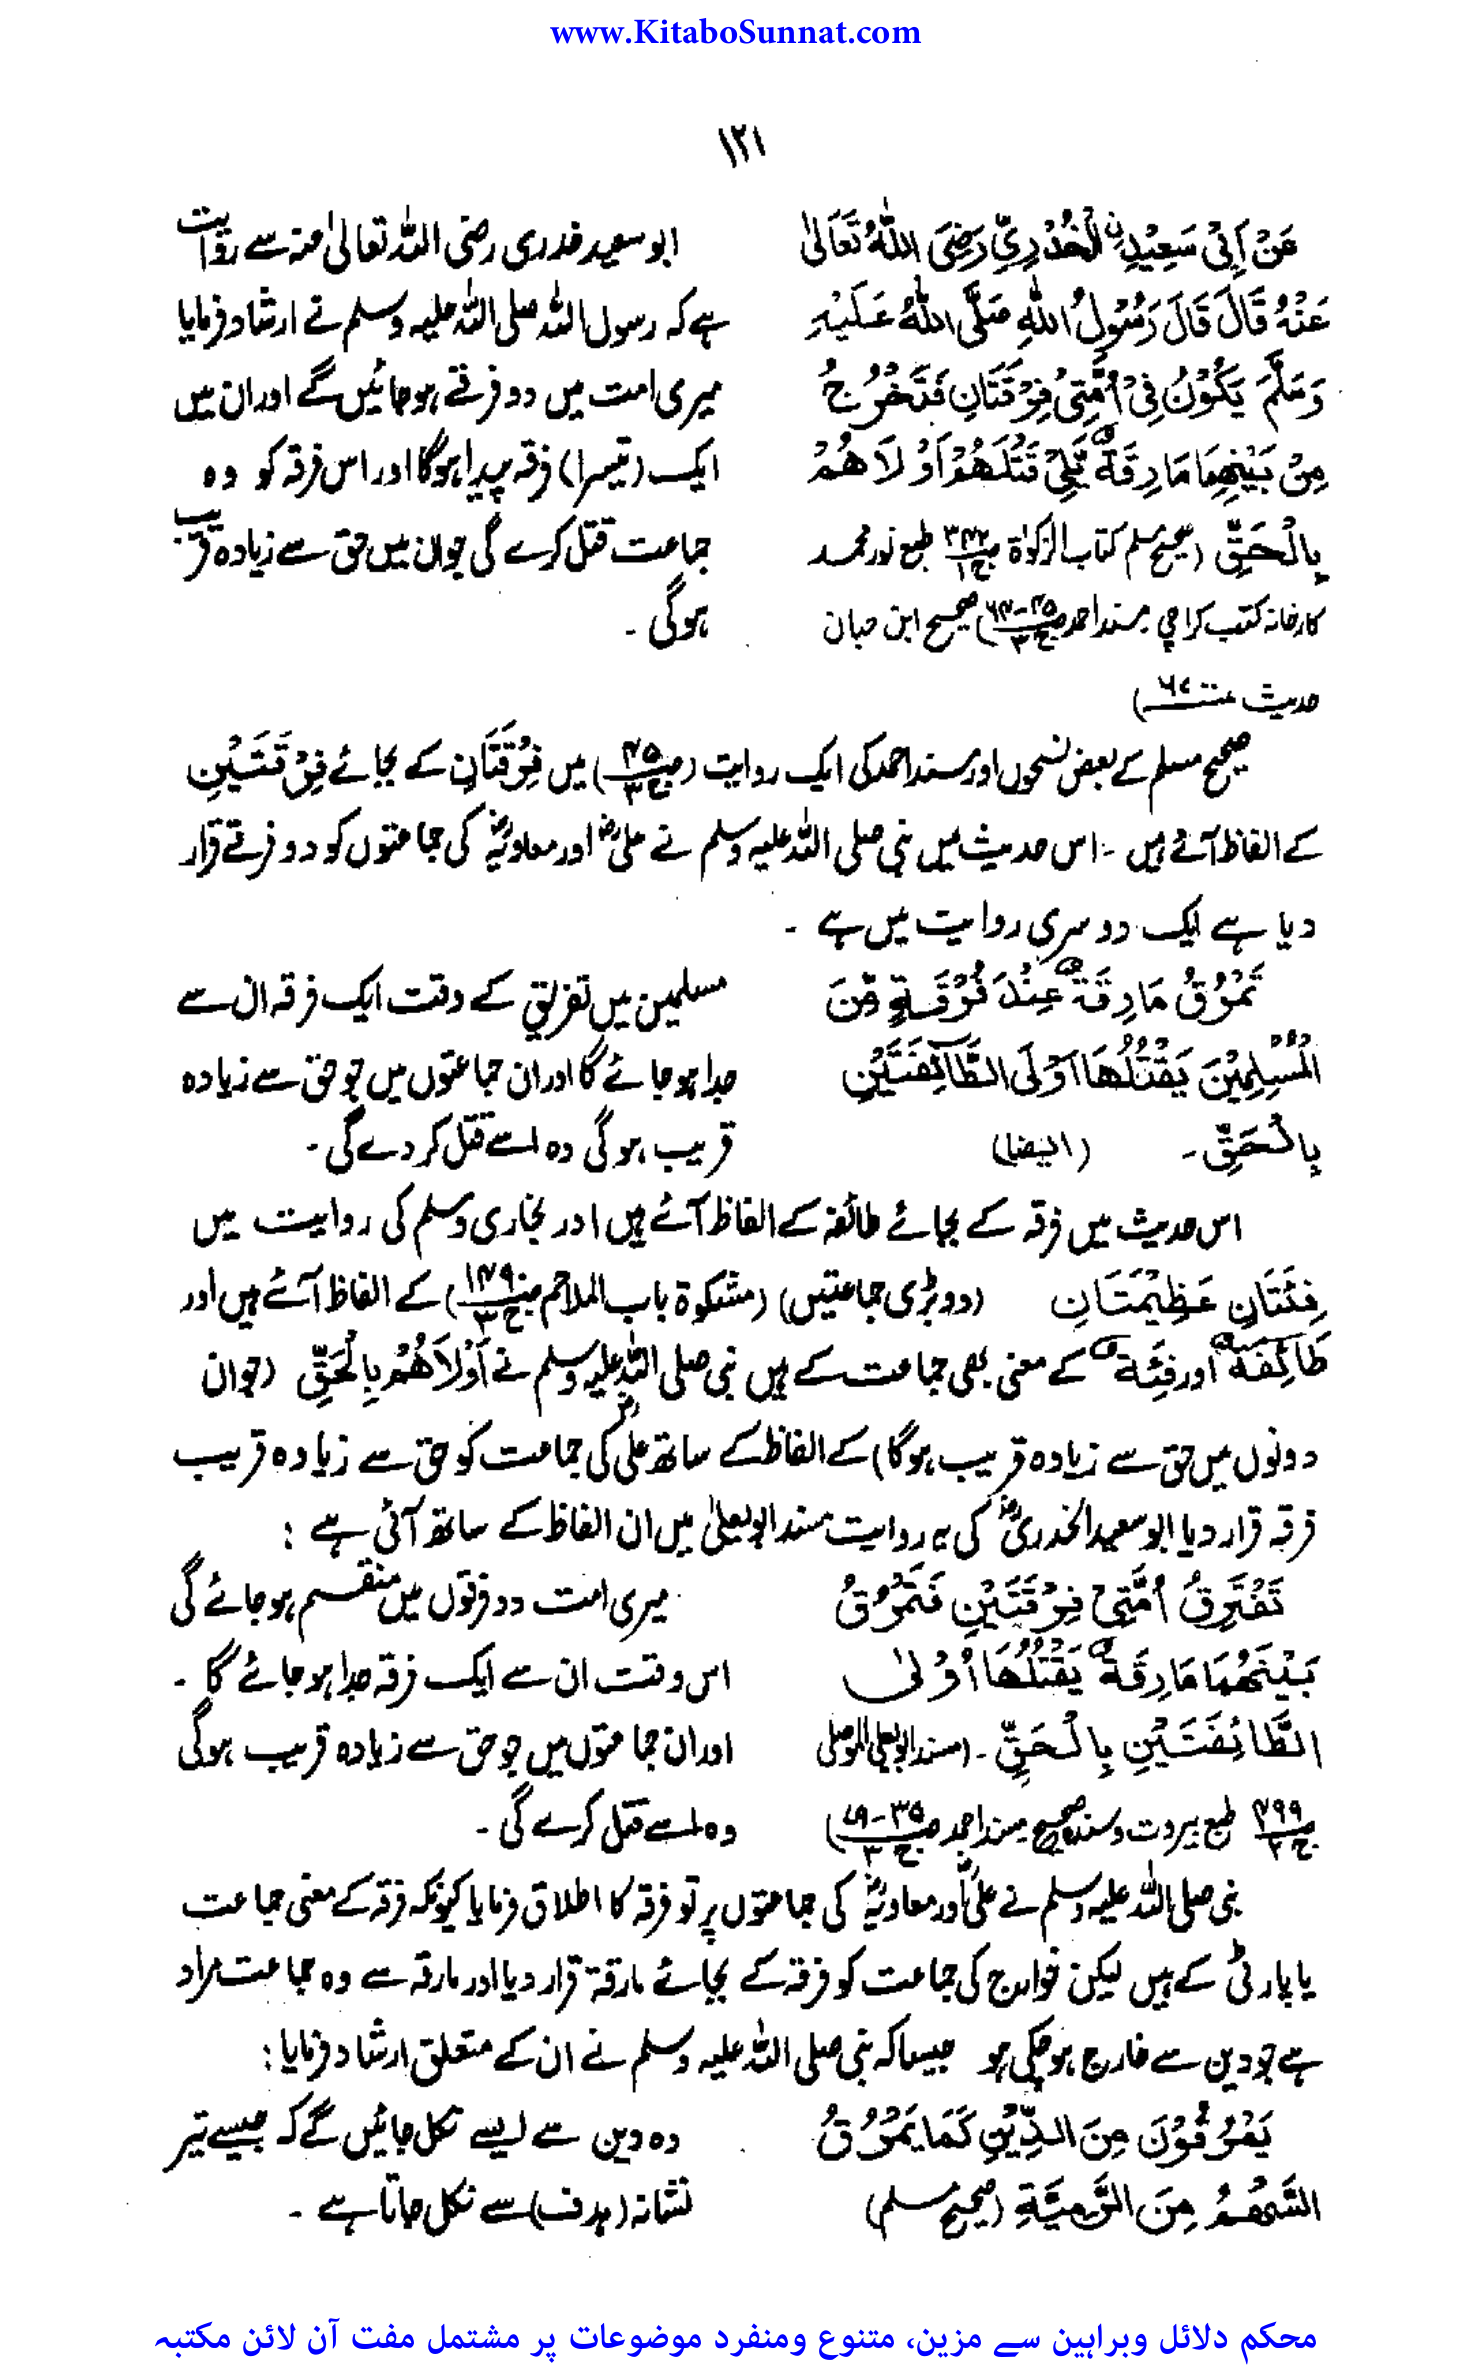 www.KitaboSunnat.com
۱۲۱
عَنْ اَبِیْ سَعِیْدِنِ الْخُدْرِیِّ رَضِیَ اللّٰهُ تَعَالٰی
عَنْهُ قَالَ قَالَ رَسُوْلُ اللّٰهِ صَلَّی اللّٰهُ عَلَیْهِ
وَسَلَّمَ یَکُوْنُ فِیْ اُمَّتِیْ فِرْقَتَانِ فَتَخْرُجُ
مِنْ بَیْنِهِمَا مَارِقَةٌ یَّلِیْ قَتْلَهُمْ اَوْلَاهُمْ
بِالْحَقِّ (صحیح مسلم کتاب الزکوٰة ج۱ طبع نور محمد
کارخانہ کتب کراچی مسند احمد ج۳) صحیح ابن حبان
حدیث
ابو سعید خدری رضی اللہ تعالیٰ عنہ سے روایت
ہے کہ رسول اللہ صلی اللہ علیہ وسلم نے ارشاد فرمایا
میری امت میں دو فرقے ہو جائیں گے اور ان میں
ایک (تیسرا) فرقہ پیدا ہوگا اور اس فرقہ کو وہ
جماعت قتل کرے گی جو ان میں حق سے زیادہ قریب
ہوگی ۔
صحیح مسلم کے بعض نسخوں اور مسند احمد کی ایک روایت (ص۴۵ ج۳) میں فِرْقَتَانِ کے بجائے فِرْقَتَیْنِ
کے الفاظ آئے ہیں ۔ اس حدیث میں نبی صلی اللہ علیہ وسلم نے علیؓ اور معاویہؓ کی جماعتوں کو دو فرقے قرار
دیا ہے ایک دوسری روایت میں ہے ۔
تَمْرُقُ مَارِقَةٌ عِنْدَ فُرْقَةٍ مِّنَ
الْمُسْلِمِیْنَ یَقْتُلُهَا اَوْلَی الطَّآئِفَتَیْنِ
بِالْحَقِّ ۔ (ایضا)
مسلمین میں تفریق کے وقت ایک فرقہ ان سے
جدا ہو جائے گا اور ان جماعتوں میں جو حق سے زیادہ
قریب ہوگی وہ اسے قتل کر دے گی ۔
اس حدیث میں فرقہ کے بجائے طائفہ کے الفاظ آئے ہیں اور بخاری و مسلم کی روایت میں
فِئَتَانِ عَظِیْمَتَانِ (دو بڑی جماعتیں) (مشکوٰة باب الملاحم ص۱۴۹۰ ج۳) کے الفاظ آئے ہیں اور
طَائِفَةٌ اور فِئَةٌ کے معنی بھی جماعت کے ہیں نبی صلی اللہ علیہ وسلم نے اَوْلَاهُمْ بِالْحَقِّ (جو ان
دونوں میں حق سے زیادہ قریب ہوگا) کے الفاظ کے ساتھ علیؓ کی جماعت کو حق سے زیادہ قریب
فرقہ قرار دیا ابو سعید الخدریؓ کی یہ روایت مسند ابو یعلیٰ میں ان الفاظ کے ساتھ آئی ہے :
تَفْتَرِقُ اُمَّتِیْ فِرْقَتَیْنِ فَتَمْرُقُ
بَیْنَهُمَا مَارِقَةٌ یَقْتُلُهَا اَوْلٰی
الطَّائِفَتَیْنِ بِالْحَقِّ ۔ (مسند ابو یعلی الموصلی
ص۴۹۹ ج۲ طبع بیروت و سندہ صحیح مسند احمد ج۳)
میری امت دو فرقوں میں منقسم ہو جائے گی
اس وقت ان سے ایک فرقہ جدا ہو جائے گا ۔
اور ان جماعتوں میں جو حق سے زیادہ قریب ہوگی
وہ اسے قتل کرے گی ۔
نبی صلی اللہ علیہ وسلم نے علیؓ اور معاویہؓ کی جماعتوں پر تو فرقہ کا اطلاق فرمایا کیونکہ فرقہ کے معنی جماعت
یا پارٹی کے ہیں لیکن خوارج کی جماعت کو فرقہ کے بجائے مارقة قرار دیا اور مارقہ سے وہ جماعت مراد
ہے جو دین سے خارج ہو چکی ہو جیسا کہ نبی صلی اللہ علیہ وسلم نے ان کے متعلق ارشاد فرمایا :
یَمْرُقُوْنَ مِنَ الدِّیْنِ کَمَا یَمْرُقُ
السَّهْمُ مِنَ الرَّمِیَّةِ (صحیح مسلم)
وہ دین سے ایسے نکل جائیں گے کہ جیسے تیر
نشانہ (ہدف) سے نکل جاتا ہے ۔
محکم دلائل وبراہین سے مزین، متنوع ومنفرد موضوعات پر مشتمل مفت آن لائن مکتبہ